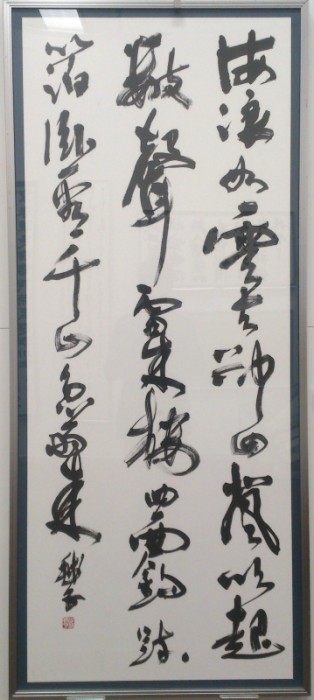 海浪如雲去却回北風吹起
數聲雷朱樓四面鉤疎
箔臥看千山急雨来